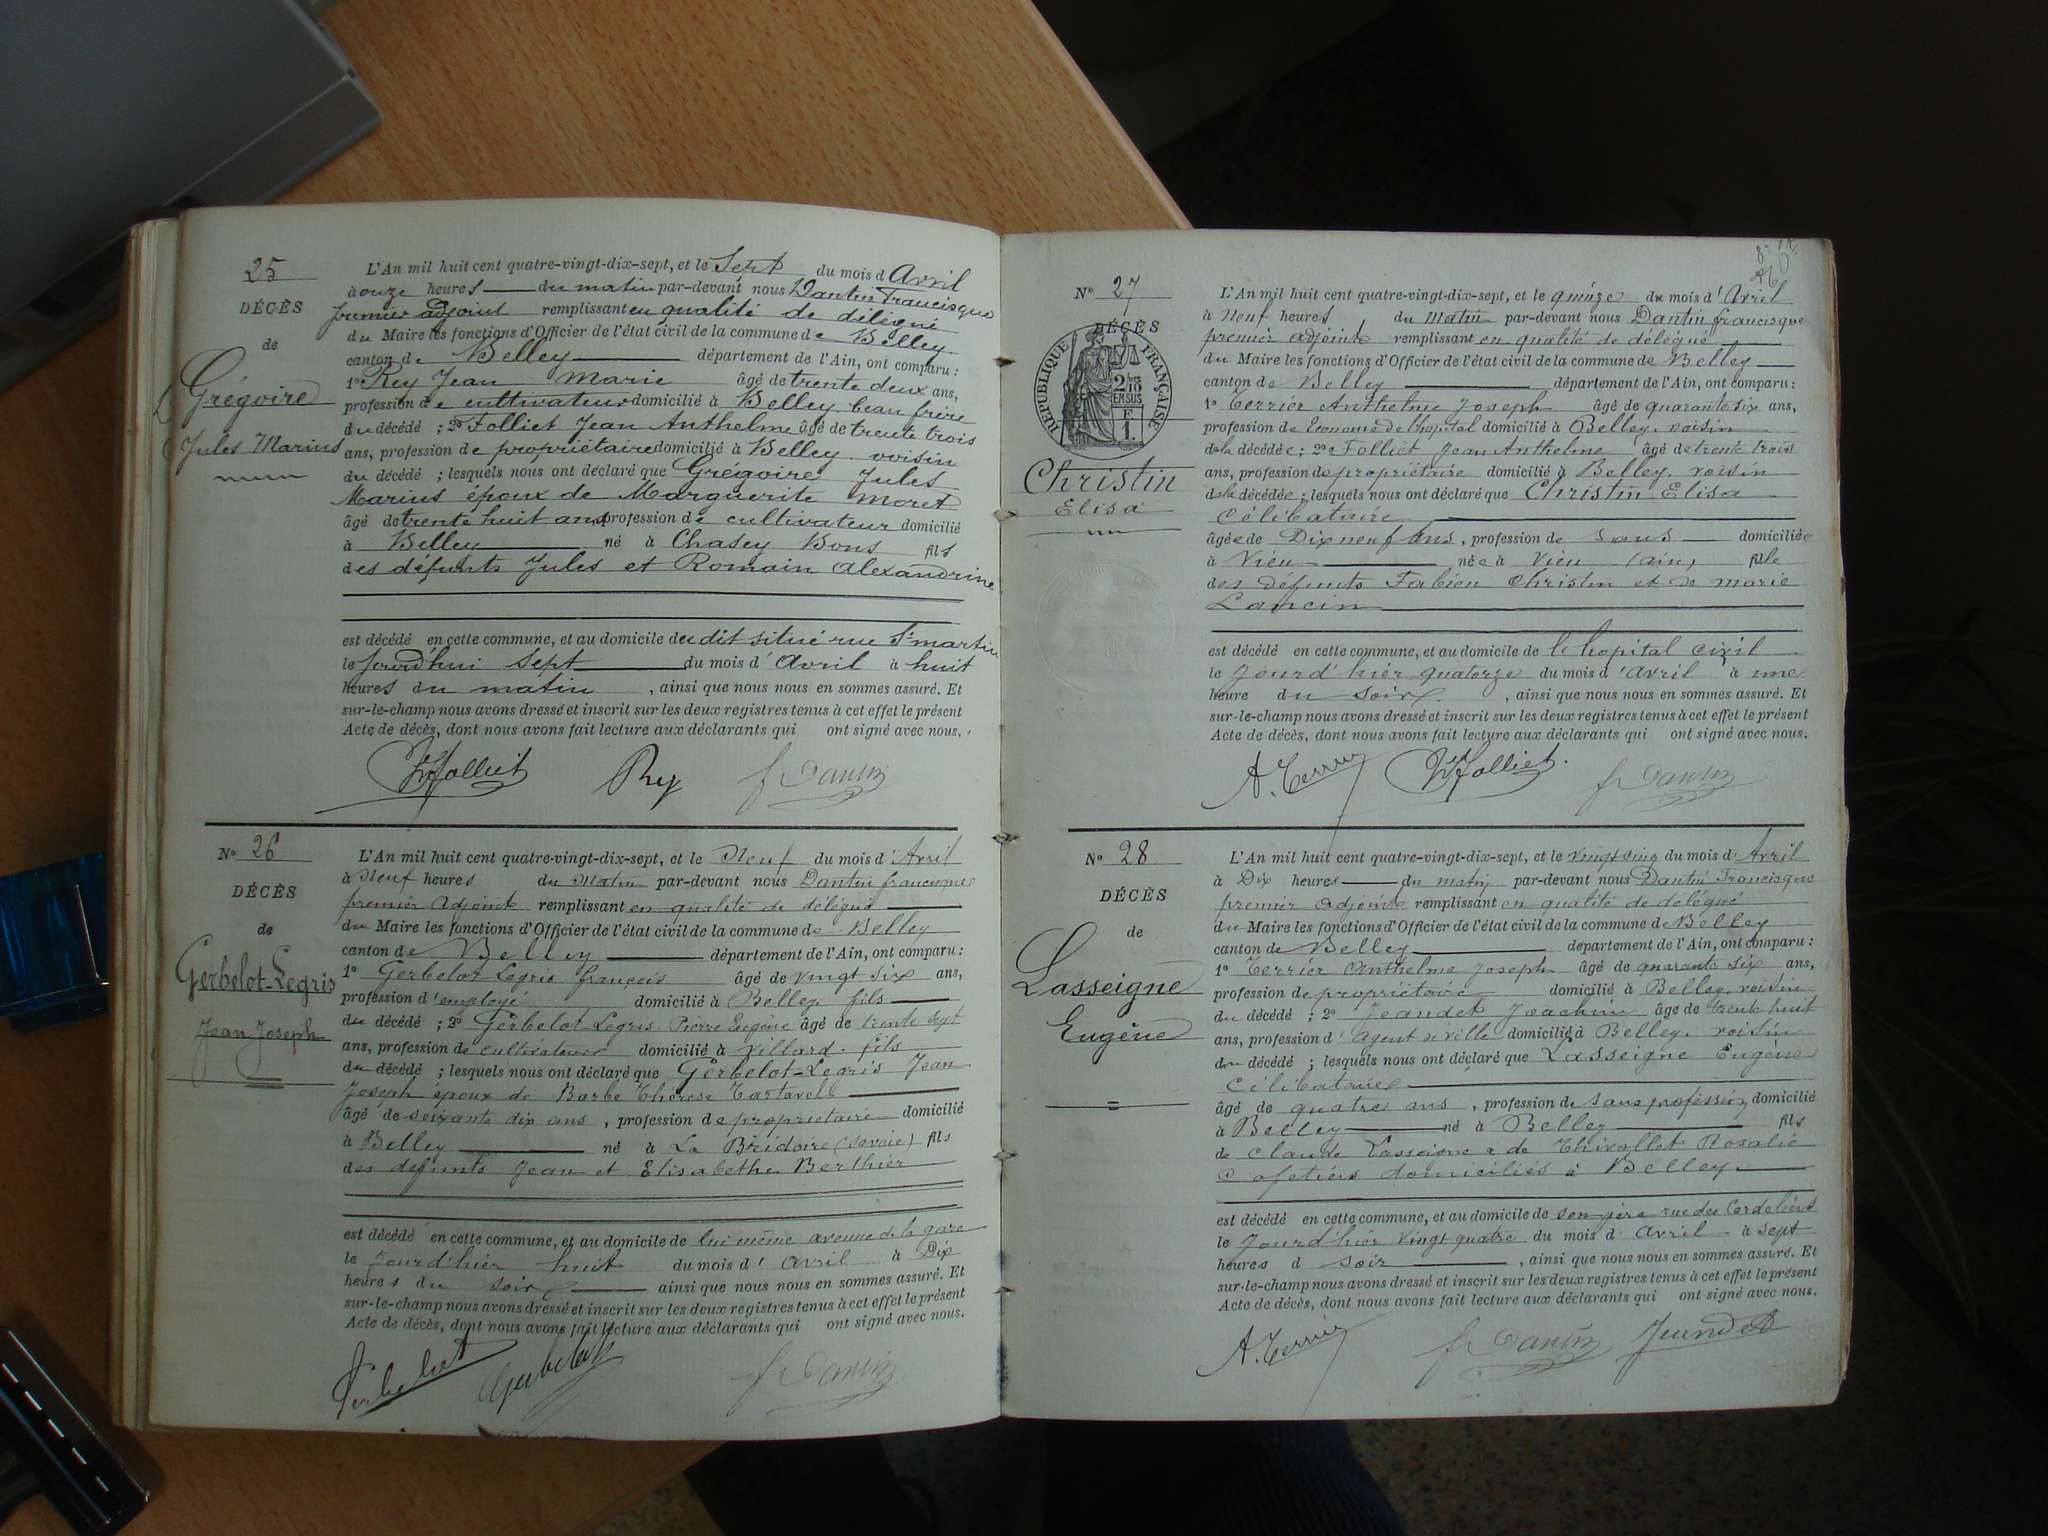 25
DÉCÈS
de
Grégoire
Jules Marius
L'An mil huit cent quatre-vingt-dix-sept, et le Sept du mois d Avril
à onze heures du matin par-devant nous Dantin Francisque
premier adjoint remplissant en qualité de délégué
du Maire les fonctions d'Officier de l'état civil de la commune de Belley
canton de Belley département de l'Ain, ont comparu :
1º Rey Jean Marie âgé de trente deux ans,
profession de cultivateur domicilié à Belley beau frère
du décédé ; 2º Folliet Jean Anthelme âgé de trente trois
ans, profession de propriétaire domicilié à Belley voisin
du décédé ; lesquels nous ont déclaré que Grégoire Jules
Marius époux de Marguerite Moret
âgé de trente huit ans profession de cultivateur domicilié
à Belley né à Chasey Bons fils
des défunts Jules et Romain Alexandrine
est décédé en cette commune, et au domicile du dit situé rue St martin
le jourd'hui sept du mois d' Avril à huit
heures du matin , ainsi que nous nous en sommes assuré. Et
sur-le-champ nous avons dressé et inscrit sur les deux registres tenus à cet effet le présent
Acte de décès, dont nous avons fait lecture aux déclarants qui ont signé avec nous.
Folliet Rey f Dantin
Nº 26
DÉCÈS
de
Gerbelot-Legris
Jean Joseph
L'An mil huit cent quatre-vingt-dix-sept, et le Neuf du mois d' Avril
à Neuf heures du Matin par-devant nous Dantin francisque
premier Adjoint remplissant en qualité de délégué
du Maire les fonctions d'Officier de l'état civil de la commune de Belley
canton de Belley département de l'Ain, ont comparu :
1º Gerbelot Legris françois âgé de vingt six ans,
profession d'employé domicilié à Belley. fils
du décédé ; 2º Gerbelot-Legris Pierre Eugène âgé de trente sept
ans, profession de cultivateur domicilié à Villard. fils
du décédé ; lesquels nous ont déclaré que Gerbelot-Legris Jean
Joseph époux de Barbe Thérèse Tartavell
âgé de soixante dix ans , profession de propriétaire domicilié
à Belley né à La Bridoire (savoie) fils
des défunts Jean et Elisabethe Berthier
est décédé en cette commune, et au domicile de lui même avenue de la gare
le jourd'hier huit du mois d' Avril à Dix
heures du soir ainsi que nous nous en sommes assuré. Et
sur-le-champ nous avons dressé et inscrit sur les deux registres tenus à cet effet le présent
Acte de décès, dont nous avons fait lecture aux déclarants qui ont signé avec nous.
Gerbelot f Dantin
Nº 27
DÉCÈS
RÉPUBLIQUE FRANÇAISE
2/10
EN SUS
F
1.
Christin
Elisa
L'An mil huit cent quatre-vingt-dix-sept, et le quinze du mois d'Avril
à Neuf heures du Matin par-devant nous Dantin francisque
premier adjoint remplissant en qualité de délégué
du Maire les fonctions d'Officier de l'état civil de la commune de Belley
canton de Belley département de l'Ain, ont comparu :
1º Terrier Anthelme Joseph âgé de quarante six ans,
profession de Econome de l'hopital domicilié à Belley. voisin
de la décédée ; 2º Folliet Jean Anthelme âgé de trente trois
ans, profession de propriétaire domicilié à Belley. voisin
de la décédée ; lesquels nous ont déclaré que Christin Elisa
Célibataire
âgée de Dix neuf ans , profession de sans domiciliée
à Vieu née à Vieu (ain) fille
des défunts Fabien Christin et de Marie
Lancin
est décédé en cette commune, et au domicile de l'hopital civil
le jourd'hier quatorze du mois d'Avril à une
heure du soir , ainsi que nous nous en sommes assuré. Et
sur-le-champ nous avons dressé et inscrit sur les deux registres tenus à cet effet le présent
Acte de décès, dont nous avons fait lecture aux déclarants qui ont signé avec nous.
A. Terrier Folliet f Dantin
Nº 28
DÉCÈS
de
Lasseigne
Eugène
L'An mil huit cent quatre-vingt-dix-sept, et le vingt cinq du mois d' Avril
à Dix heures du matin par-devant nous Dantin Francisque
premier adjoint remplissant en qualité de délégué
du Maire les fonctions d'Officier de l'état civil de la commune de Belley
canton de Belley département de l'Ain, ont comparu :
1º Terrier Anthelme Joseph âgé de quarante six ans,
profession de propriétaire domicilié à Belley, voisin
du décédé ; 2º Jeandet Joachim âgé de trente huit
ans, profession d'Agent de ville domicilié à Belley. voisin
du décédé ; lesquels nous ont déclaré que Lasseigne Eugène
Célibataire
âgé de quatre ans , profession de sans profession domicilié
à Belley né à Belley fils
de Claude Lasseigne & de Thivollet Rosalie
Cafetiers domiciliés à Belley
est décédé en cette commune, et au domicile de son père rue des Cordeliers
le jourd'hier vingt quatre du mois d' Avril à sept
heures d soir , ainsi que nous nous en sommes assuré. Et
sur-le-champ nous avons dressé et inscrit sur les deux registres tenus à cet effet le présent
Acte de décès, dont nous avons fait lecture aux déclarants qui ont signé avec nous.
A. Terrier f Dantin Jeandet